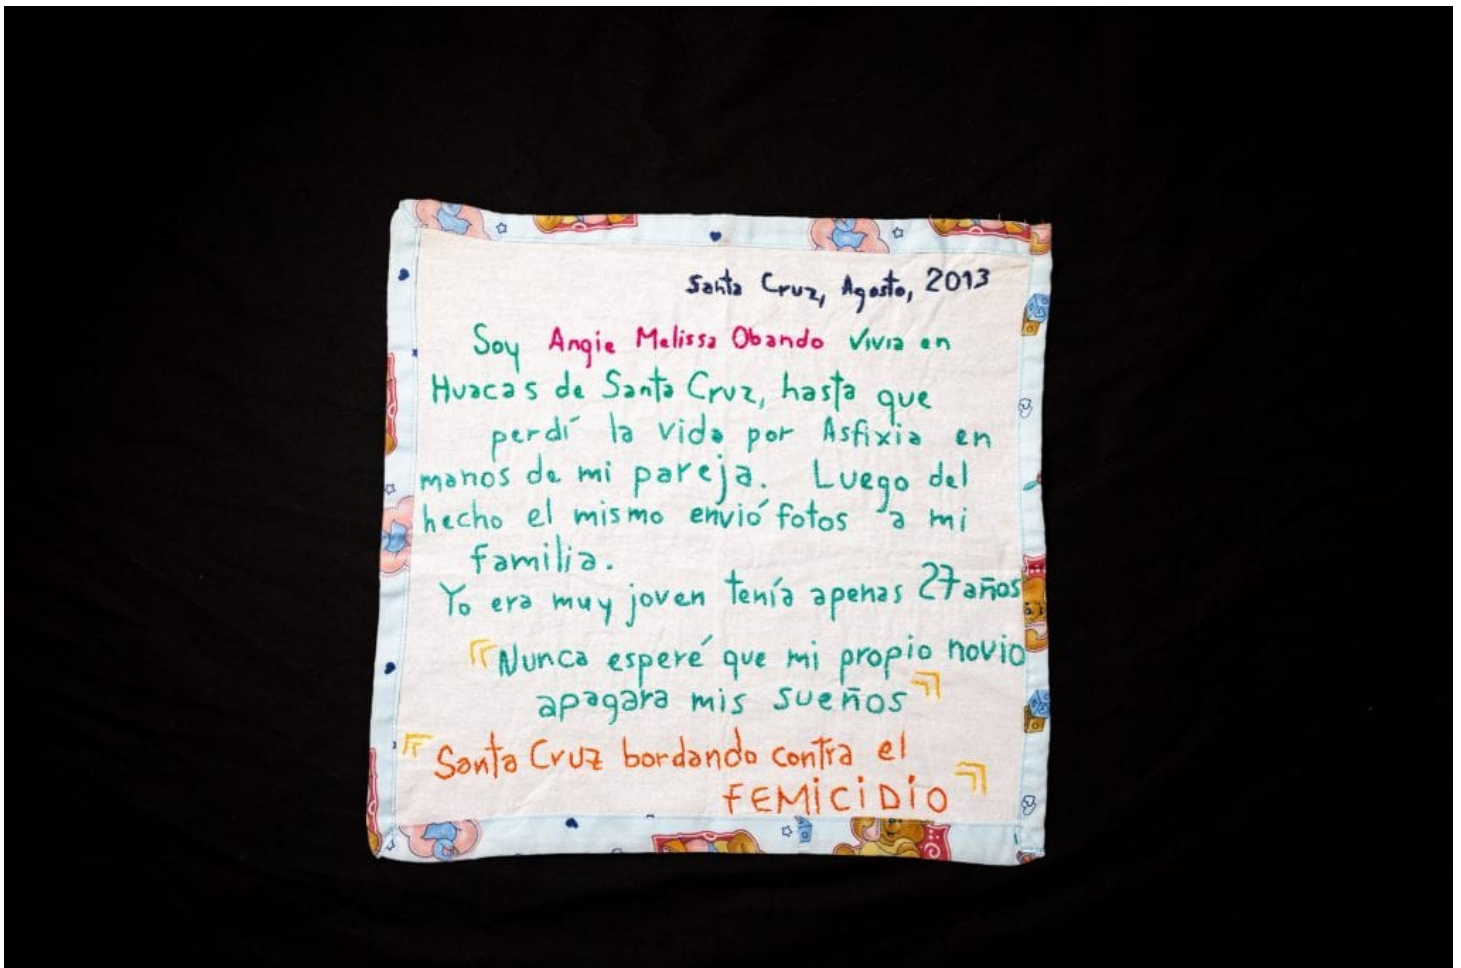 Santa Cruz, Agosto, 2013
Soy Angie Melissa Obando Vivia en
Huacas de Santa Cruz, hasta que
perdí la vida por Asfixia en
manos de mi pareja. Luego del
hecho el mismo envió fotos a mi
familia.
Yo era muy joven tenía apenas 27 años
"Nunca esperé que mi propio novio
apagara mis sueños"
"Santa Cruz bordando contra el
FEMICIDIO"